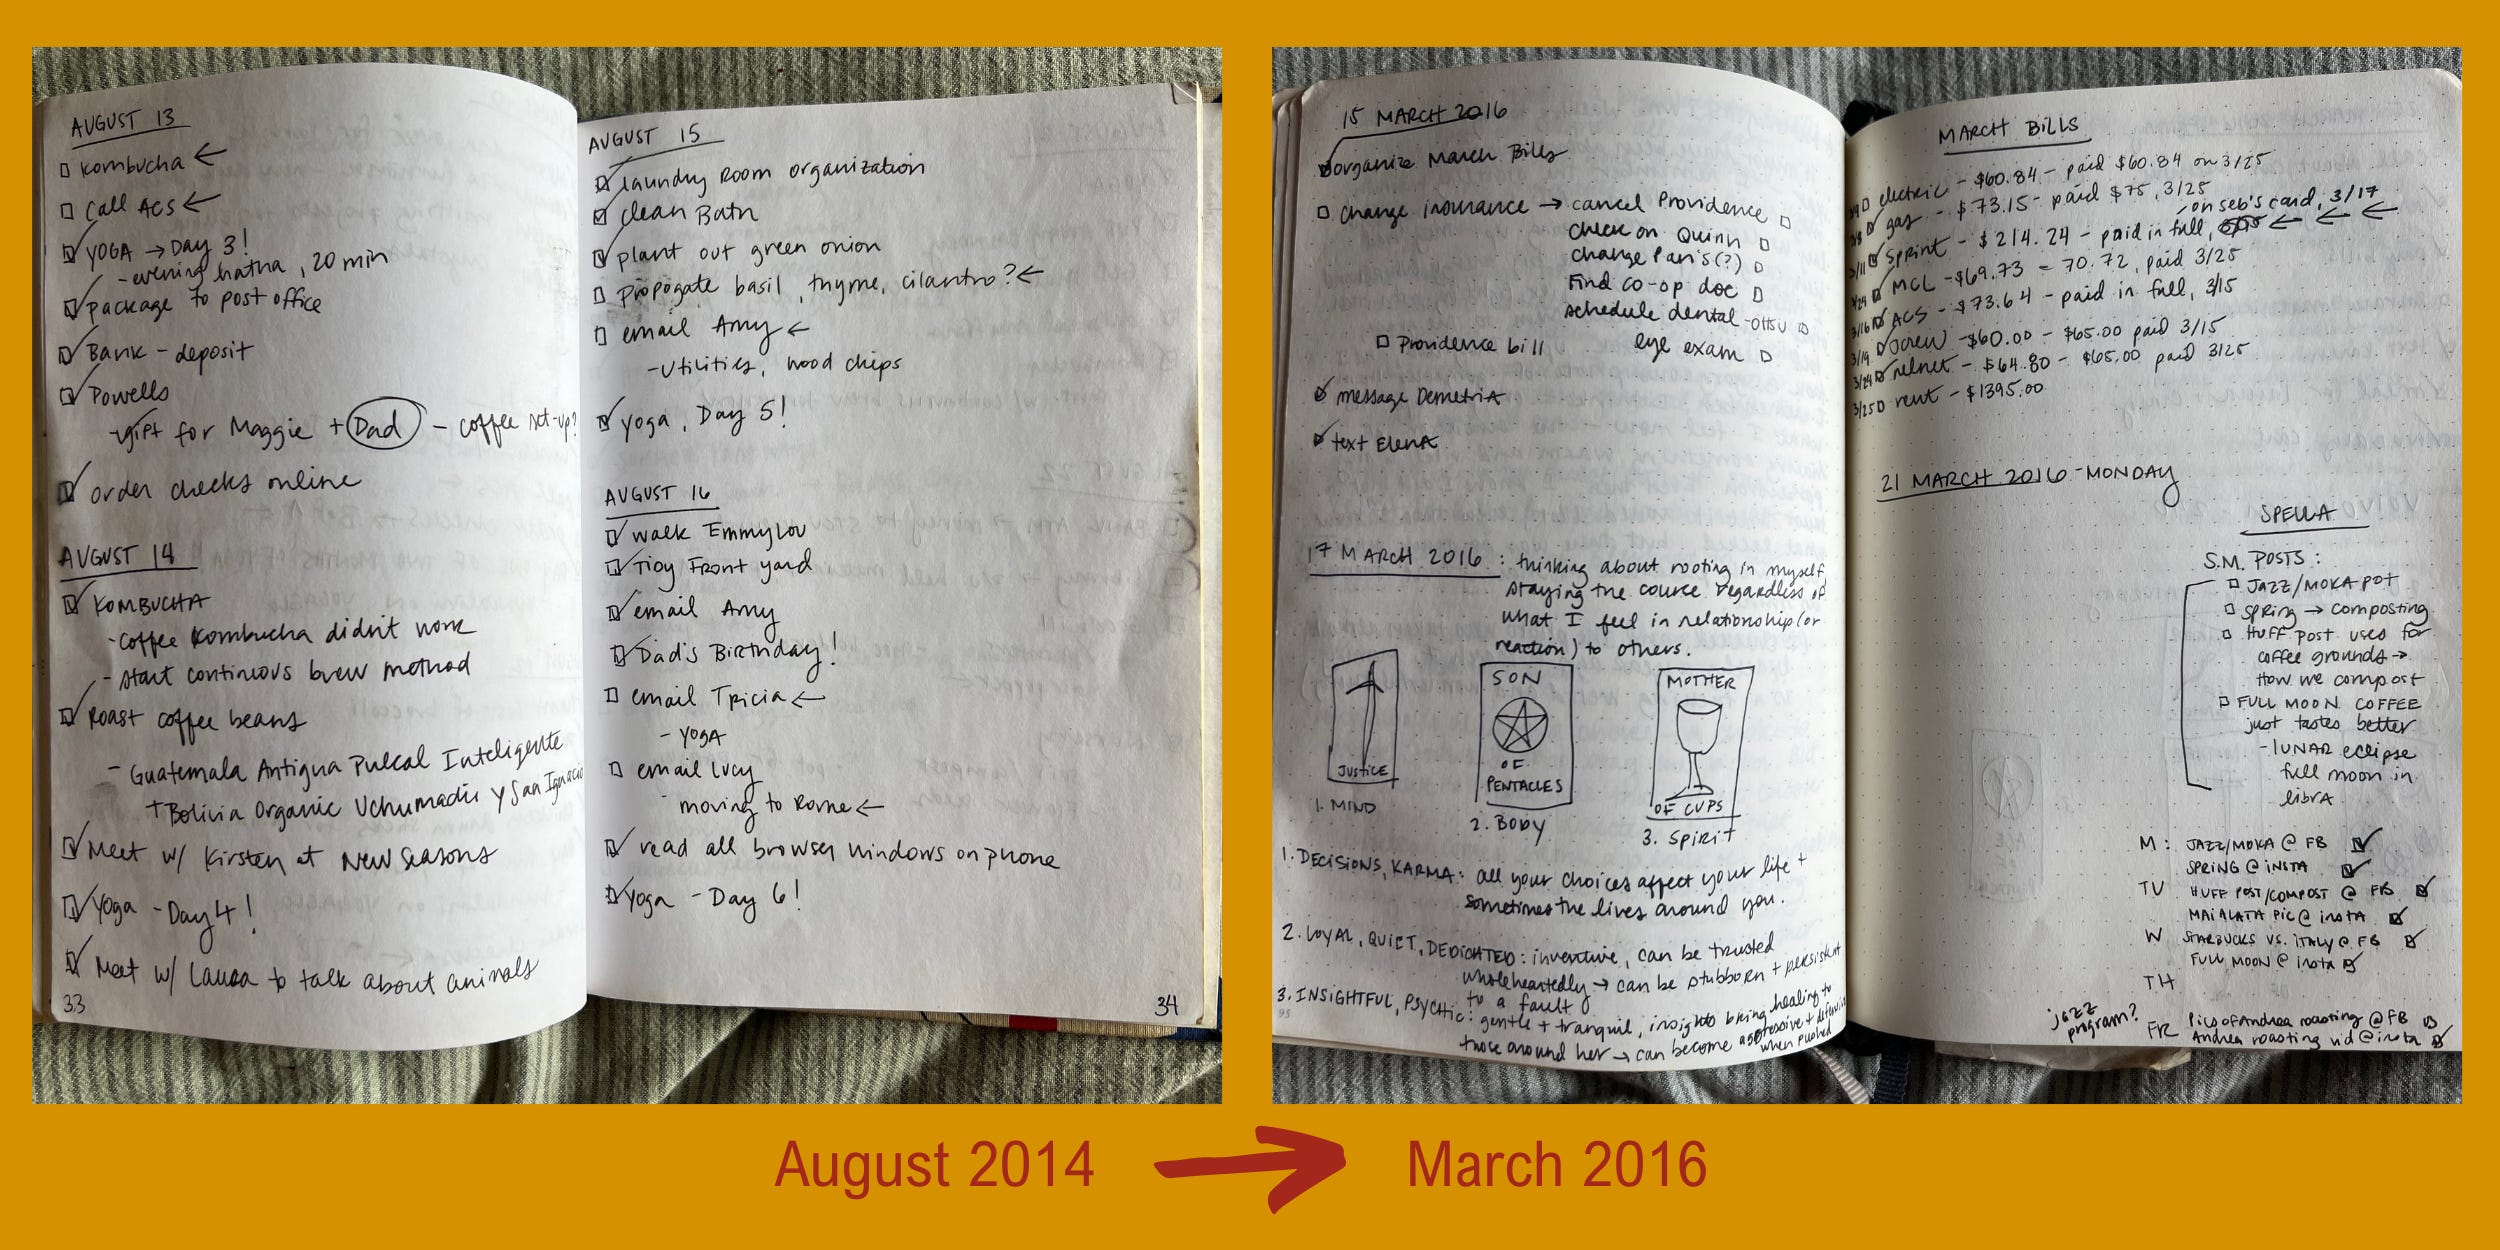 AUGUST 13
kombucha ←
Call ACS ←
YOGA → Day 3!
- evening hatha, 20 min
package to post office
Bank - deposit
Powells
- gift for Maggie + Dad - coffee set-up?
order checks online
AUGUST 14
KOMBUCHA
- coffee kombucha didn't work
- start continuous brew method
Roast coffee beans
- Guatemala Antigua Pulcal Inteligente
+ Bolivia Organic Uchumachi y San Ignacio
Meet w/ Kirsten at New Seasons
Yoga - Day 4!
Meet w/ Laura to talk about animals
33
AUGUST 15
laundry room organization
clean Bath
plant out green onion
propogate basil, thyme, cilantro? ←
email Amy ←
- utilities, wood chips
yoga, Day 5!
AUGUST 16
walk Emmylou
Tidy Front yard
email Amy
Dad's Birthday!
email Tricia ←
- YOGA
email Lucy
moving to Rome ←
read all browser windows on phone
Yoga - Day 6!
34
15 MARCH 2016
organize March Bills
Change insurance → cancel Providence
check on Quinn
change Pari's (?)
Find co-op doc
schedule dental - OHSU
eye exam
Providence bill
message Demetria
text Elena
17 MARCH 2016 : thinking about rooting in myself
staying the course regardless of
what I feel in relationship (or
reaction) to others.
JUSTICE
1. MIND
SON
OF
PENTACLES
2. BODY
MOTHER
OF CUPS
3. SPIRIT
1. DECISIONS, KARMA: all your choices affect your life +
sometimes the lives around you.
2. LOYAL, QUIET, DEDICATED: inventive, can be trusted
wholeheartedly → can be stubborn + persistent
to a fault
3. INSIGHTFUL, PSYCHIC: gentle + tranquil, insights bring healing to
those around her → can become aggressive + defensive
when pushed
95
MARCH BILLS
electric - $60.84 - paid $60.84 on 3/25
3/8 gas - $73.15 - paid $75, 3/25
on seb's card, 3/17
3/11 Sprint - $214.24 - paid in full, ← ← ←
3/24 MCL - $69.73 = 70.72, paid 3/25
3/16 ACS - $73.64 - paid in full, 3/15
3/19 JCrew - $60.00 - $65.00 paid 3/15
3/24 nelnet - $64.80 - $65.00 paid 3/25
3/25 rent - $1395.00
21 MARCH 2016 - MONDAY
SPELLA
S.M. POSTS:
JAZZ/MOKA POT
SPRING → composting
HUFF POST uses for
coffee grounds →
How we compost
FULL MOON COFFEE
just tastes better
- LUNAR eclipse
full moon in
libra
M: JAZZ/MOKA @ FB
SPRING @ INSTA
TU HUFF POST/COMPOST @ FB
MAIALATA PIC @ insta
W STARBUCKS VS. ITALY @ FB
FULL MOON @ insta
TH
jazz
program?
FR Pics of Andrea roasting @ FB
Andrea roasting vid @ insta
August 2014 → March 2016